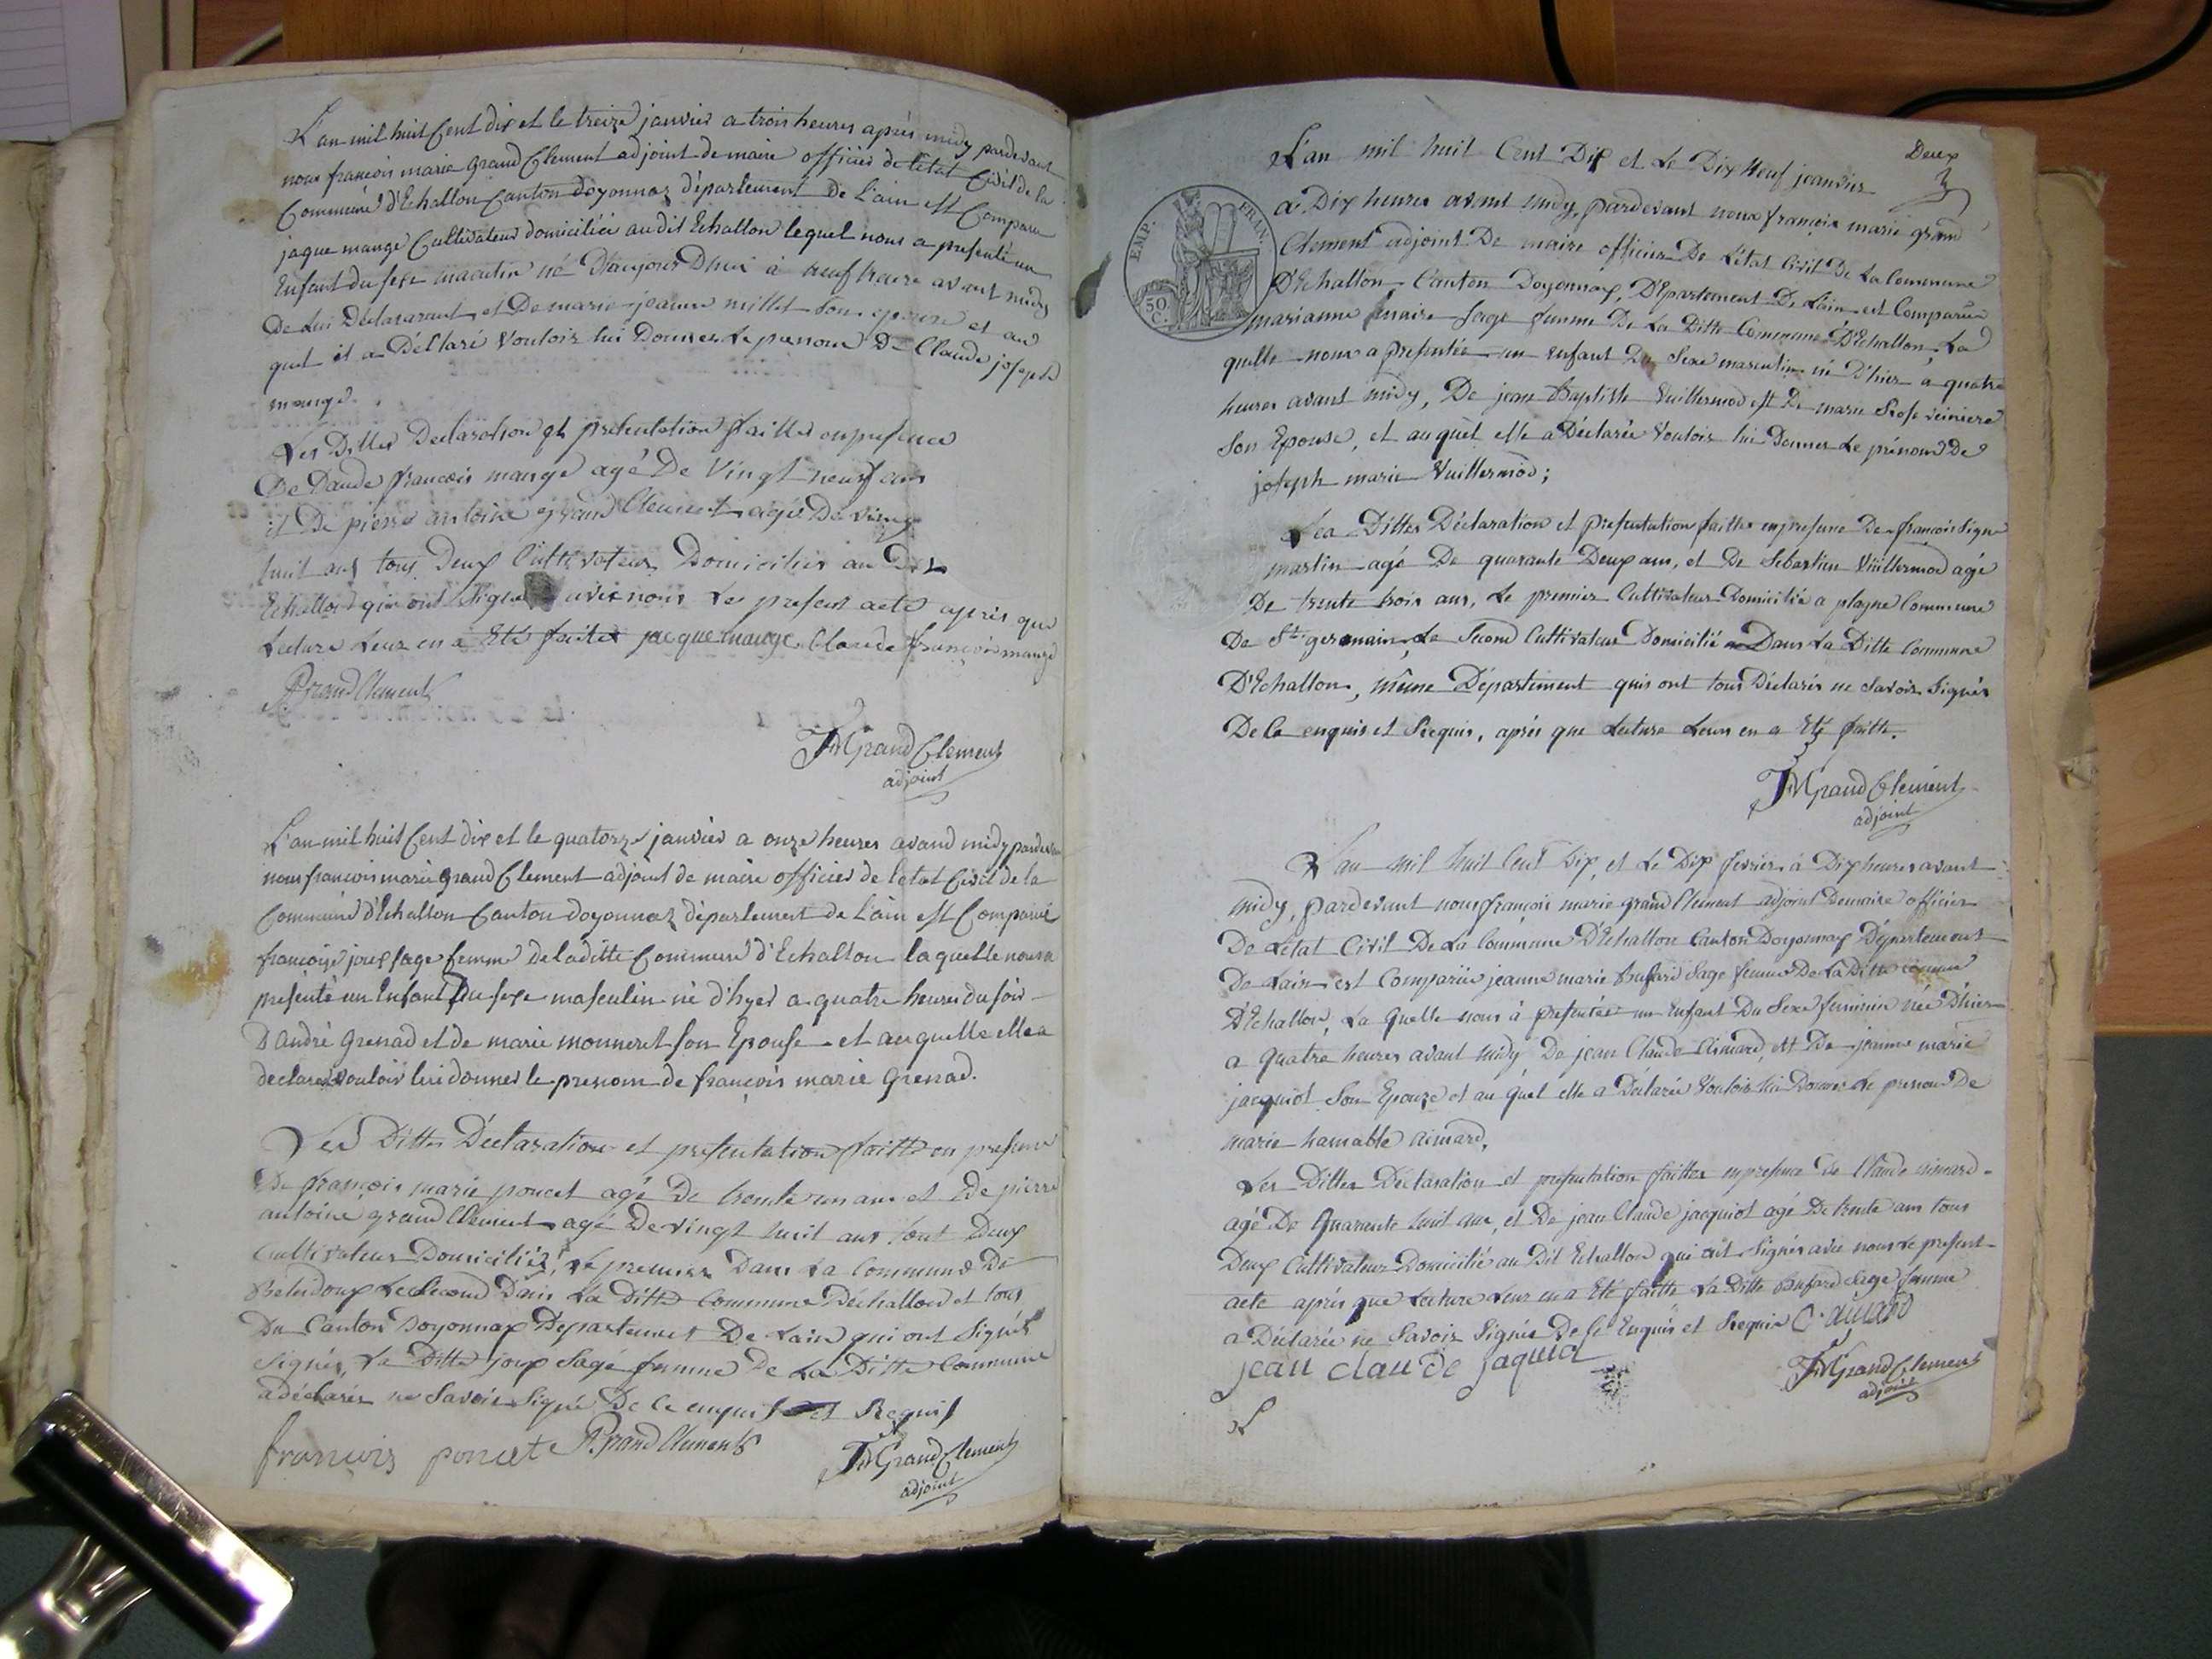 L'an mil huit Cent dix et le treize janvier a trois heures après midy pardevant
nous francois marie grand Clement adjoint de maire officier de l'état Civil de la
Commune d'Echallon Canton doyonnaz département De L'ain est Comparu
jaque mange Cultivateur domiciliée audit Echallon lequel nous a presenté un
Enfant du sexe masculin né D'aujourd'hui à neuf heure avant midy
De Lui Déclararant, et De marie jeanne millet son epouse et au
quel il a Déclaré Vouloir lui Donner Le prenom De Claude joseph
mange.
Les Dittes Declaration et présentation faittes en presence
De Claude francois mange agé De Vingt neuf ans
et De pierre antoine grand Clement agé De vingt
huit ans tous Deux Cultivateurs Domiciliés au Dit
Echallon qui ont signé avec nous Le present acte après que
Lecture Leur en a Eté faitte jacque mange Claude francois mange
PGrandClement
FMGrandClement
adjoint
L'an mil huit Cent dix et le quatorze janvier a onze heures avand midy pardevan
nous francois marie grand Clement adjoint de maire officier de l'etat Civil de la
Commune d'Echallon Canton doyonnaz département de L'ain est Comparuë
françoise joux sage femme de laditte Commune d'Echallon laquelle nous a
presenté un Enfant du sexe masculin né d'hyer a quatre heures du soir
D'andré grenad et de marie monneret son Epouse et auquelle elle a
declaréz vouloir lui donner le prenom de françois marie grenad.
Les Dittes Déclaration et présentation faitte en presence
De françois marie poncet agé De trente un ans et De pierre
antoine grand Clement agé De vingt huit ans tout Deux
Cultivateurs Domiciliés, Le premier Dans La Commune De
Belidoux Le Second Dans La Ditte Commune Dechallon et tous
Du Canton Doyonnax Departement De Lain qui ont Signés
Signés, La Ditte joux Sage femme De La Ditte Commune
a déclarée ne Savoir Signé De ce enquis et Requis
francois poncete PGrandClement
FMGrandClement
adjoint
Deux
2
L'an mil huit Cent Dix et Le Dix Neuf jeanvier
EMP. FRAN.
50 C.
a Dix heures avent midy, pardevant nous françois marie grand
Clement adjoint De maire officier De L'état Civil De La Commune
D'Echallon Canton Doyonnax, Département De Lain est Comparüe
marianne maire Sage femme De La Ditte Commune D'Echallon, La
quelle nous a presentée un enfant Du Sexe masculin né D'hier a quatre
heures avant midy, De jean Baptiste Vuillermod et De marie Rose reiniere
Son Epouse, et auquel elle a Déclarée Vouloir lui Donner Le prénom De
joseph marie Vuillermod;
Les Dittes Déclaration et presentation faittes en presence De françois Sigue
martin agé De quarante Deux ans, et De Sebastien Vuillermod agé
De trente trois ans, Le premier Cultivateur Domicilié a plagne Commune
De St germain, Le Second Cultivateur Domicilié Dans La Ditte Commune
D'Echallon, même Département quis ont tous Déclarés ne Savoir Signés
De ce enquis et Requis, après que Lecture Leurs en a Eté faitte.
FMGrandClement
adjoint
L'an mil huit Cent Dix, et Le Dix fevrier à Dix heures avant
midy, pardevant nous françois marie grand Clement adjoint De maire officier
De L'état Civil De La Commune D'Echallon Canton Doyonnax Département
De Lain est Comparüe jeanne marie Bufard Sage femme De La Ditte Comune
D'Echallon, La quelle nous à presentée un Enfant Du Sexe feminin née D'hier
a quatre heures avant midy De jean Claude aimard, et De jeanne marie
jacquiot Son Epouze et au quel elle a Déclarée Vouloir lui Donner Le prenom De
marie hamable aimard.
Les Dittes Déclaration et presentation faittes en presence De Claude aimard
agé De quarante huit ans, et De jean Claude jacquiot agé De trente ans tous
Deux Cultivateurs Domicilié au Dit Echallon qui ont Signés avec nous Le present
acte après que Lecture Leur en a Eté faitte La Ditte Bufard Sage femme
a Déclarée ne Savoir Signée De ce Enquis et Requis C. aimard
jean claude jaquiot
FMGrandClement
adjoint